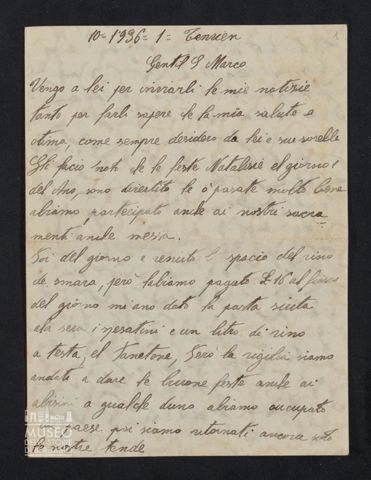 10 = 1936 = 1 = Tenxen
1
Gentil S Marco
Vengo a lei per inviarli le mie notizie
tanto per farli sapere che la mia salute e
otima, come sempre desidero da lei e sue sorelle
Gli facio noti che le feste Natalesie el giorno 1
del Ano, sono divertito le ò pasate molto bene
abiamo partecipato anche ai nostri sacra
menti anche messa.
Poi del giorno e venuto lo spacio del vino
de smara, però l'abiamo pagato £ 16 al
del giorno mi ano dato la pasta sciuta
ala sera i mesatini e un litro di vino
a testa, el Panetone, Però la vigilia siamo
andati a dare le buone feste anche ai
abisini a qualche duno abiamo ocupato
paese poi siamo ritornati ancora soto
le nostre tende
MUSEO